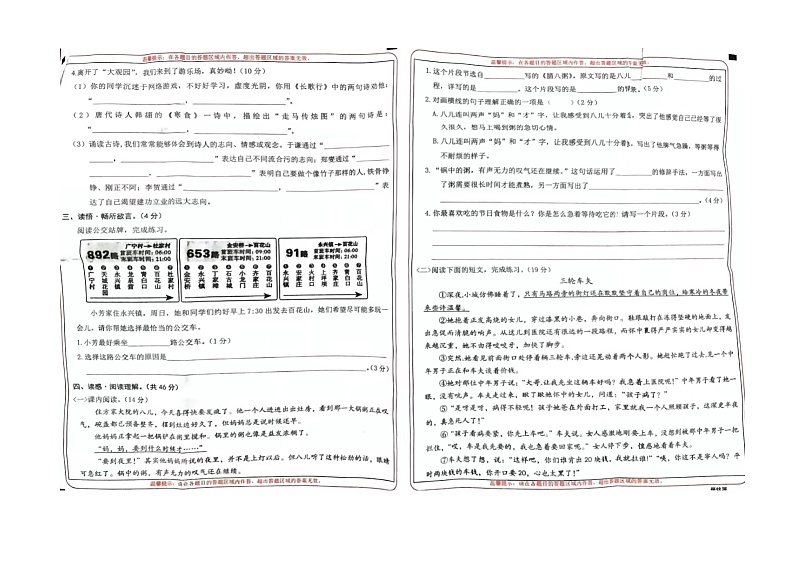 温馨提示：在各题目的答题区域内作答，超出答题区域的答案无效。
4.离开了“大观园”，我们来到了游乐场，真妙呦!(10分)
(1)你的同学沉迷于网络游戏，不好好学习，虚度光阴，你用《长歌行》中的两句诗劝他：
“____________，____________”。
(2)唐代诗人韩翃的《寒食》一诗中，描绘出“走马传烛图”的两句诗是：
“____________，____________”。
(3)诵读古诗，我们常常能够体会到诗人的志向、情感或观念。于谦通过“____________
____________，____________”表达自己不同流合污的志向；郑燮通过“____________
____________，____________”表明自己要做个像竹子那样的人，铁骨铮
铮、刚正不阿；李贺通过“____________，____________”表
达了自己渴望建功立业的远大志向。
三、读悟·畅所欲言。(4分)
阅读公交站牌，完成练习。
892路
广宁村→杜家村
首班车时间：06:00
末班车时间：11:00
653路
金安桥→百花山
首班车时间：09:00
末班车时间：21:00
91路
永兴镇→百花山
首班车时间：06:00
末班车时间：21:00
小芳家住永兴镇，周日，她和同学们约好早上7:30出发去百花山，她们希望尽可能多玩一
会儿，请你帮她选择最恰当的公交车。
1.小芳最好乘坐________路公交车。(1分)
2.选择这路公交车的原因是____________
____________。(3分)
四、读感·阅读理解。(共46分)
(一)课内阅读。(14分)
住方家大院的八儿，今天喜得快要发疯了。他一个人进进出出灶房，看到那一大锅粥正在叹
气，碗盏都已预备整齐，摆到灶边好久了，但妈妈总是说时候还早。
他妈妈正拿起一把锅铲在粥里搅和。锅里的粥也像是益发浓稠了。
“妈，妈，要到什么时候才……”
“要到夜里！”其实他妈妈所说的夜里，并不是上灯以后。但八儿听了这种松劲的话，眼睛
可急红了。锅中的粥，有声无力的叹气还在继续。
温馨提示：请在各题目的答题区域内作答，超出答题区域的答案无效。
温馨提示：在各题目的答题区域内作答，超出答题区域的答案无效。
1.这个片段节选自________写的《腊八粥》。原文写的是八儿________和________的过
程，详写的是________，这个片段写的是________的情景。(5分)
2.对画横线的句子理解正确的一项是(  )(2分)
A.八儿连叫两声“妈”和“才”字，让我感受到八儿十分着急，突出了他感觉自己已经等了很
久很久，想马上喝到粥的急切心情。
B.八儿连叫两声“妈”和“才”字，让我感受到八儿十分着急，写出了他脾气急躁、等粥等得
不耐烦的样子。
3.“锅中的粥，有声无力的叹气还在继续。”这句话运用了________的修辞手法，一方面写出
了粥需要很长时间才能煮熟，另一方面写出了____________
____________。(4分)
4.你最喜欢吃的节日食物是什么？你是怎么急着等待吃它的?请写一个片段。(3分)
(二)阅读下面的短文，完成练习。(19分)
三轮车夫
①深夜，小城仿佛睡着了，只有马路两旁的街灯还在默默坚守着自己的岗位，给寒冷的冬夜带
来些许温馨。
②她抱着正发高烧的女儿，穿过漆黑的小巷，奔向街口。鞋跟敲打在冻得坚硬的地面上，发
出急促而清脆的响声。从这儿到医院还有很远的一段路程，而怀中裹得严严实实的女儿却变得越
来越沉重，她不由得咬咬牙，加快了脚步。
③突然，她看见前面街口处停着辆三轮车，旁边还晃动着两个人影。她赶忙跑了过去，见一个中
年男子正在和车夫谈着价钱。
④她对那位中年男子说：“大哥，让我先坐这辆车好吗？我急着上医院呢！”中年男子看了她一
眼，没有吭声。车夫看了她一眼，又瞅了瞅她怀中的女儿，问道：“孩子病了？”
⑤“是呀是呀，病得不轻呢！孩子她爸在外面打工，家里就我一个人照顾孩子，这深更半夜
的，真急死人了！”
⑥“孩子看病要紧，你先上车吧。”车夫说。女人感激地刚要上车，没想到就那中年男子一把
拦住，“哎，车是我先要的，我也急着要回家呢。”女人停下步，懂感地看着车夫。
⑦车夫想了想，说：“这样吧，你们谁肯出20块钱，我就拉谁。”“咦，你这不是宰人吗？平
时两块钱的车钱，你开口要20，心也太黑了！”
温馨提示：请在各题目的答题区域内作答，超出答题区域的答案无效。